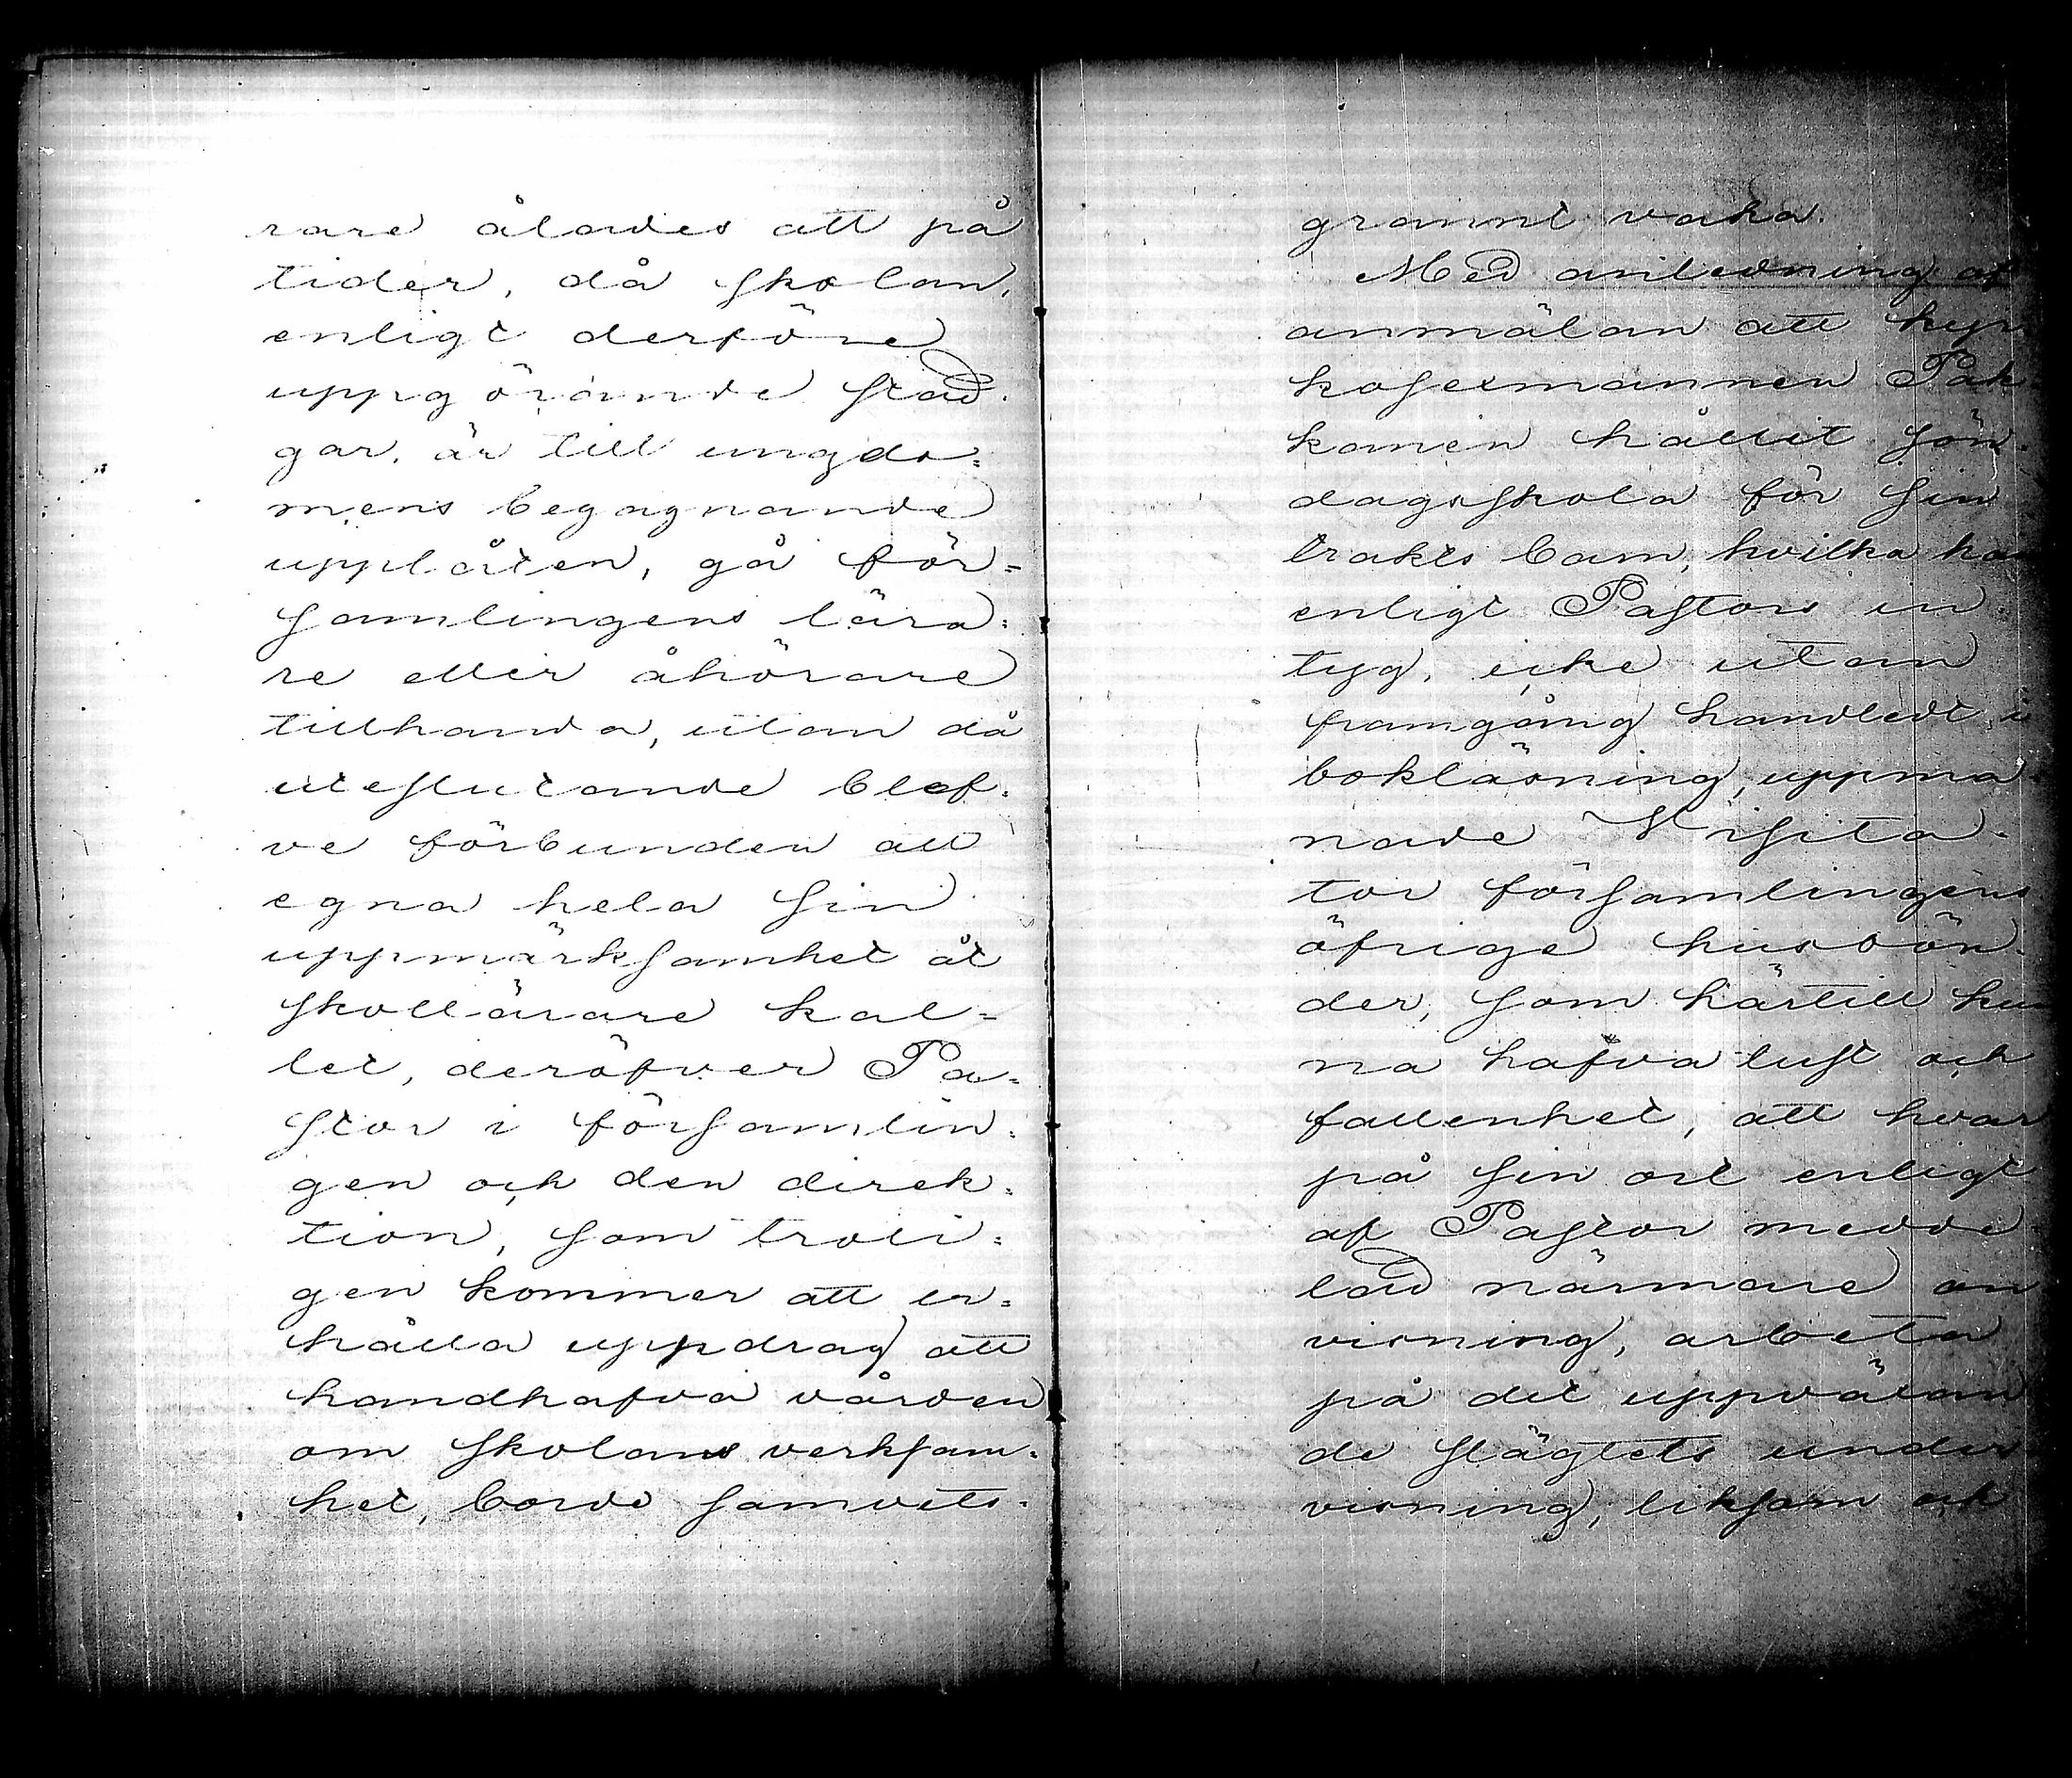 rare ålades att på
tider, då skolan,
enligt derföre
uppgörande stad-
gar, är till ungdo=
mens begagnande
upplåten, gå för=
samlingens lära=
re eller åhörare
tillhanda, utan då
uteslutande blef-
ve förbunden att
egna hela sin
uppmärksamhet åt
skollärare kal=
let, deröfver Pa=
stor i försam̄lin=
gen och den direk=
tion, som troli=
gen kommer att er=
hålla uppdrag att
handhafva vården
om skolans verksam=
het, borde samvets-
grannt vaka.
Med anledning af
anmälan att kyr
kosexmannen Pak-
kanen hållit sön-
dagsskola för sin
trakts barn, hvilka han
enligt Pastors in-
tyg, icke utan
framgång handledt i
bokläsning, uppma-
nade Visita-
tor församlingens
öfrige husbön-
der, som härtill kun
na hafva lust och
fallenhet, att hvar
på sin ort enligt
af Pastor medde-
lad närmare an
visning, arbeta
på det uppväxan
de slägtets under
visning, liksom och